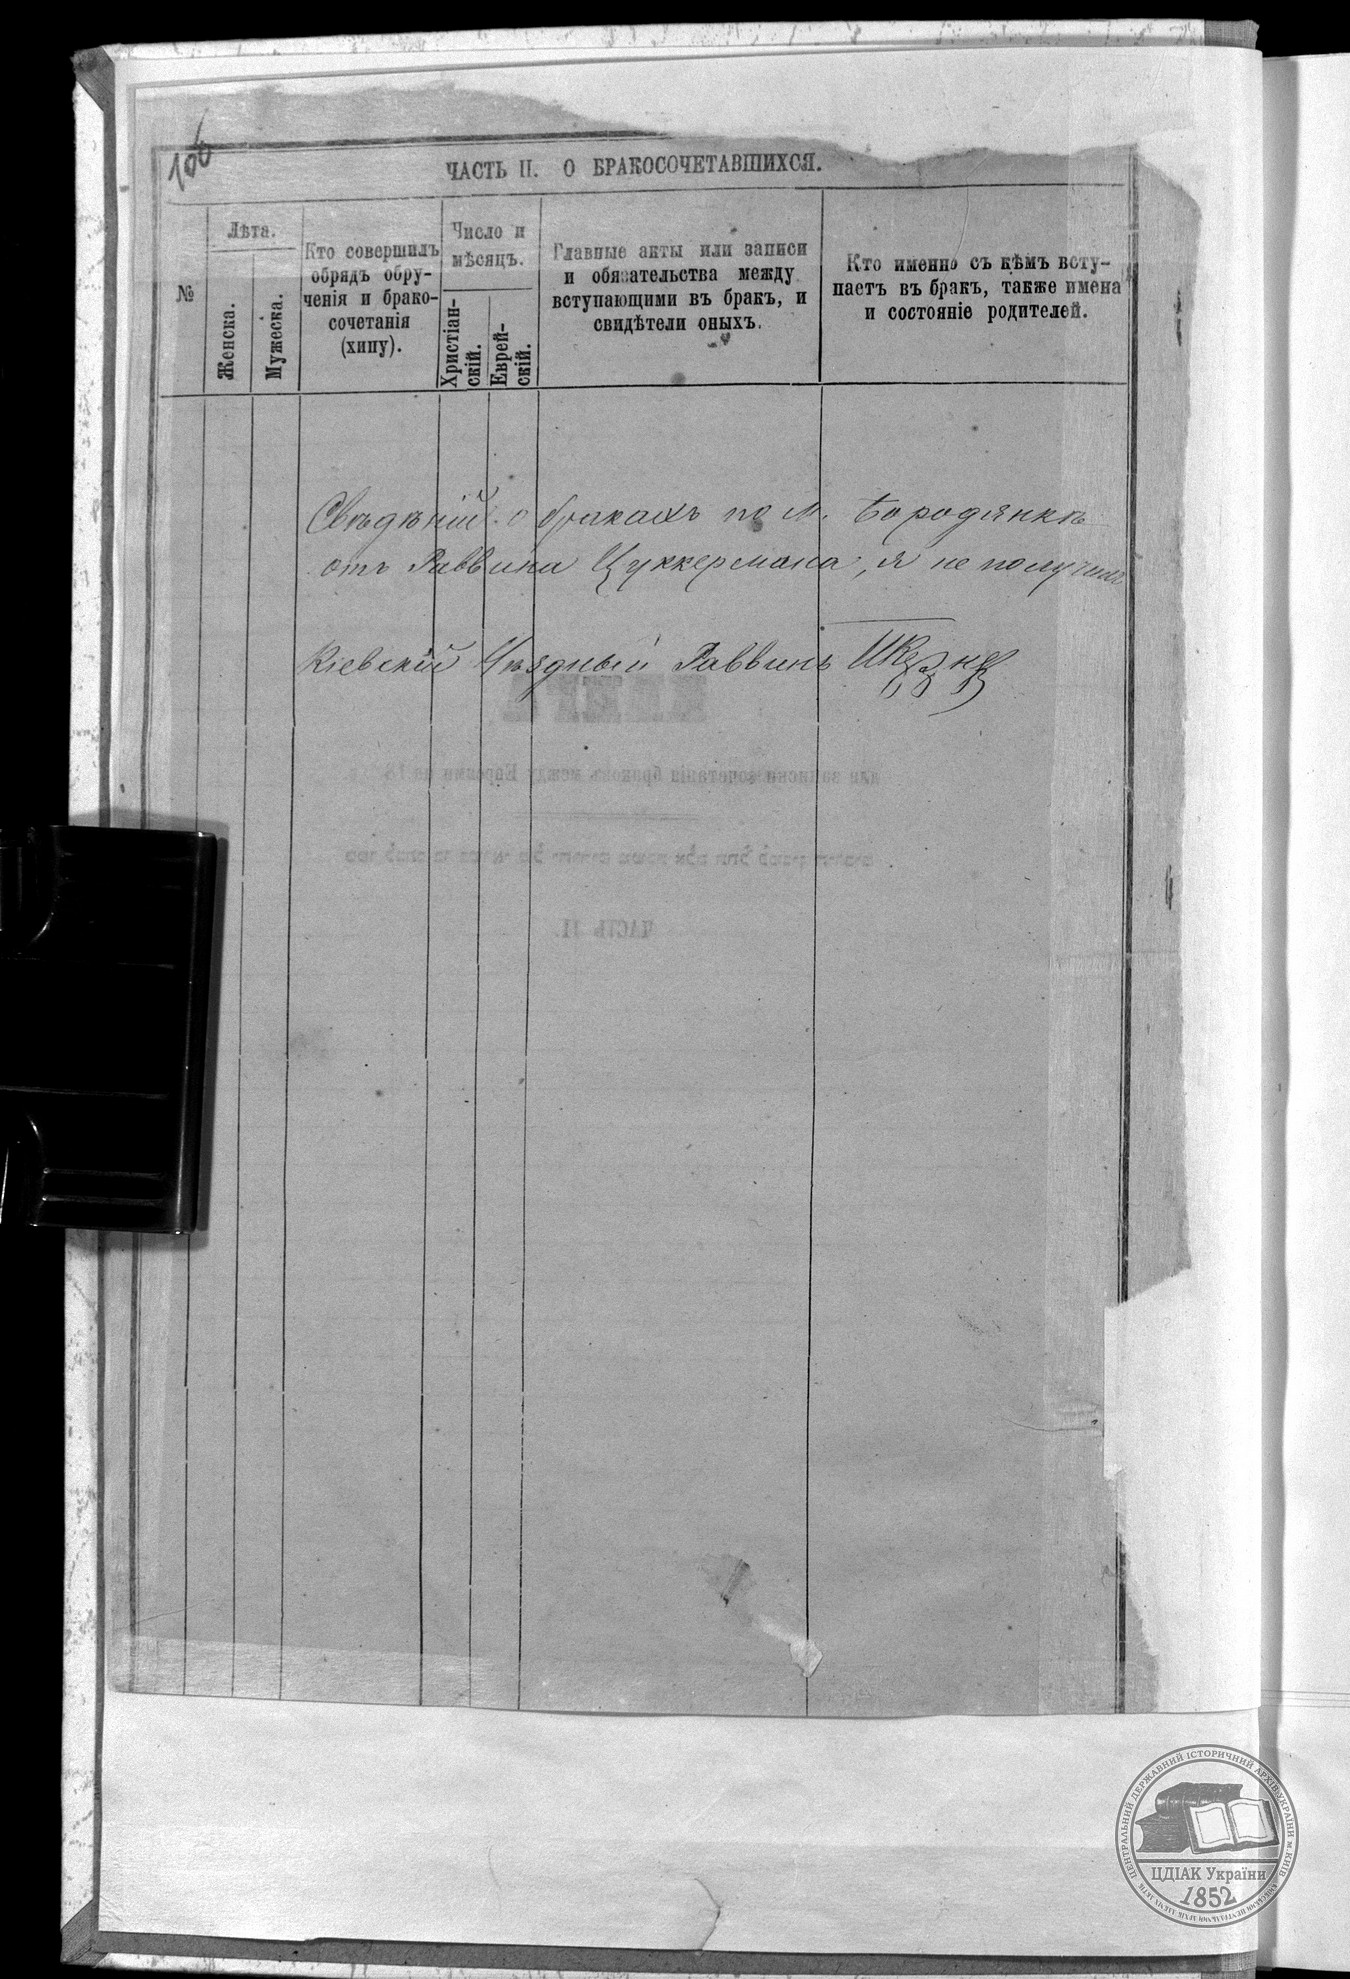 106
ЧАСТЬ II. О БРАКОСОЧЕТАВШИХСЯ.
№
Лѣта.
Женска.
Мужеска.
Кто совершилъ
обрядъ обру-
ченія и брако-
сочетанія
(хипу).
Число и
мѣсяцъ.
Христіан-
скій.
Еврей-
скій.
Главные акты или записи
и обязательства между
вступающими въ бракъ, и
свидѣтели оныхъ.
Кто именно съ кѣмъ всту-
паетъ въ бракъ, также имена
и состояніе родителей.
Свѣдѣній о бракахъ по м. Бородянкѣ
отъ Раввина Цуккермана, я не получилъ
Кіевскій Уѣздный Раввинъ
КНИГА
для записки сочетанія браковъ между Евреями на 18
ЧАСТЬ II.
ЦЕНТРАЛЬНИЙ ДЕРЖАВНИЙ ІСТОРИЧНИЙ АРХІВ УКРАЇНИ м. КИЇВ
ЦДІАК України
1852